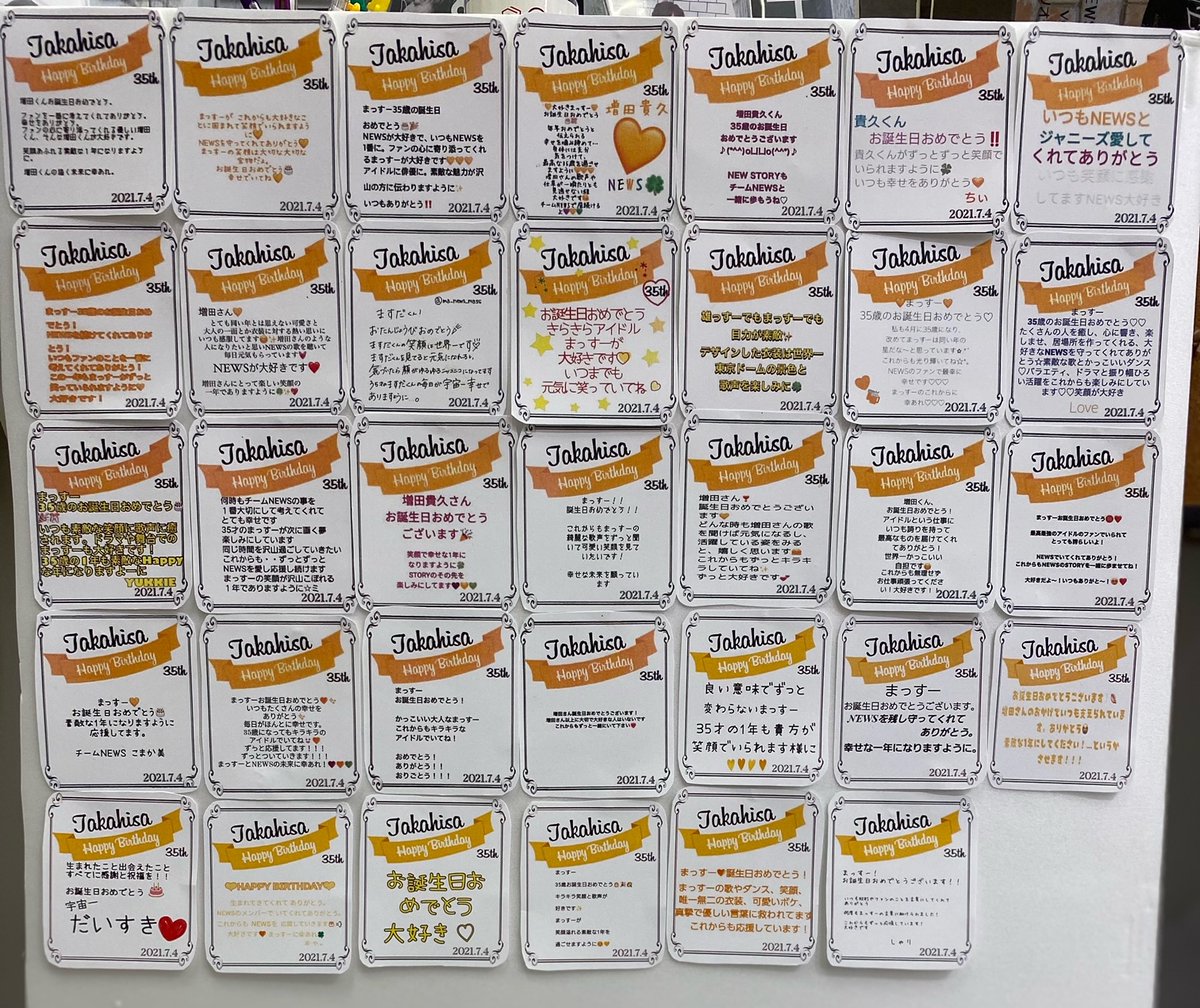 Takahisa
Happy Birthday
35th
増田くんお誕生日おめでとう。
ファンを一番に考えてくれてありがとう。
幸せをありがとう。
ファンの心に寄り添ってくれる優しい増田
くん。そんな増田くんが大好きです。
笑顔あふれる素敵な1年になりますように。
増田くんの描く未来に幸あれ。
2021.7.4
Takahisa
Happy Birthday
35th
まっすーが これからも大好きなこ
とに囲まれて笑顔でいられますよう
に🧡
NEWSを守ってくれてありがとう🧡
まっすーの笑顔は大切な大切な
宝物だよ。
お誕生日おめでとう🎂
幸せでいてね🧡
2021.7.4
Takahisa
Happy Birthday
35th
まっすー35歳の誕生日
おめでとう🎂🎉
NEWSが大好きで、いつもNEWSを
1番に。ファンの心に寄り添ってく
れるまっすーが大好きです🧡🧡🧡
アイドルに俳優に。素敵な魅力が沢
山の方に伝わりますように✨
いつもありがとう‼️
2021.7.4
Takahisa
Happy Birthday
35th
🧡大好きまっすー🧡
お誕生日おめでとう
増田貴久
🧡
NEWS🍀
2021.7.4
Takahisa
Happy Birthday
35th
増田貴久くん
35歳のお誕生日
おめでとうございます
NEW STORYも
チームNEWSと
一緒に歩もうね♡
2021.7.4
Takahisa
Happy Birthday
35th
貴久くん
お誕生日おめでとう‼️
貴久くんがずっとずっと笑顔で
いられますように🍀
いつも幸せをありがとう🧡
ちぃ
2021.7.4
Takahisa
Happy Birthday
35th
いつもNEWSと
ジャニーズ愛して
くれてありがとう
いつも笑顔に感謝
してますNEWS大好き
2021.7.4
Takahisa
Happy Birthday
35th
まっすー35歳のお誕生日おめ
でとう!
NEWSを守ってくれてありが
とう!
いつもファンのことを一番に
考えてくれてありがとう!
笑っている一年になりますように
大好きです!
2021.7.4
Takahisa
Happy Birthday
35th
増田さん♡
とても同い年とは思えない可愛さと
大人の一面とか衣装に対する熱い思いに
いつも感服してます 増田さんのような
人になりたいと思いNEWSの歌を聴いて
毎日元気もらっています❤️
NEWSが大好きです❤️
増田さんにとって楽しい笑顔の
一年でありますように🍀✨
2021.7.4
Takahisa
Happy Birthday
35th
ますだくん!
おたんじょうびおめでとう🎉
ますだくんの笑顔は世界一です
ますだくんを見てると元気になれるし、
2021.7.4
Takahisa
Happy Birthday
35th
お誕生日おめでとう
きらきらアイドル
まっすーが
大好きです💛
いつまでも
元気に笑っていてね
2021.7.4
Takahisa
Happy Birthday
35th
雄っすーでもまっすーでも
目力が素敵✨
デザインした衣装は世界一
東京ドームの景色と
歌声を楽しみに🍀
2021.7.4
Takahisa
Happy Birthday
35th
🧡まっすー🧡
35歳のお誕生日おめでとう♡
私も4月に35歳になり、
改めてまっすーは同い年の
星だな〜と思っています
これからも光り輝いてね
NEWSのファンで最幸に
幸せです♡♡♡
まっすーのこれからに
幸あれ♡♡♡
2021.7.4
Takahisa
Happy Birthday
35th
まっすー
35歳のお誕生日おめでとう♡♡
たくさんの人を癒し、心に響き、楽
しませ、居場所を作ってくれる、大
好きなNEWSを守ってくれてありが
とう☆素敵な歌とかっこいいダンス
♡バラエティ、ドラマと振り幅ひろ
い活躍をこれからも楽しみにしてい
ます♡♡笑顔が大好き
Love
2021.7.4
Takahisa
Happy Birthday
35th
まっすー
35歳のお誕生日おめでとう🎂
いつも素敵な笑顔に歌声に癒
されます。ドラマや舞台での
まっすーも大好きです!
35歳の1年も素敵なHappy
な年になりますよーに
YUKKIE
2021.7.4
Takahisa
Happy Birthday
35th
何時もチームNEWSの事を
1番大切にして考えてくれて
とても幸せです
35才のまっすーが次に画く夢
楽しみにしています
同じ時間を沢山過ごしていきたい
これからも・ずっとずっと
NEWSを愛し応援し続けます
まっすーの笑顔が沢山こぼれる
1年でありますように☆ミ
2021.7.4
Takahisa
Happy Birthday
35th
増田貴久さん
お誕生日おめでとう
ございます🎉
笑顔で幸せな1年に
なりますように🍀
STORYのその先を
楽しみにしてます
2021.7.4
Takahisa
Happy Birthday
35th
まっすー!!
お誕生日おめでとう!!
これからもまっすーの
綺麗な歌声をずっと聞
いて可愛い笑顔を見て
いたいです!
幸せな未来を願ってい
ます
2021.7.4
Takahisa
Happy Birthday
35th
増田さん❣️
お誕生日おめでとうござい
ます🧡
どんな時も増田さんの歌
を聞けば元気になるし、
活躍している姿をみる
と、嬉しく思います
これからもずっとキラキ
ラしていてね✨
ずっと大好きです
2021.7.4
Takahisa
Happy Birthday
35th
増田くん、
お誕生日おめでとう!
アイドルという仕事に
いつも誇りを持って
最高なものを届けてくれ
てありがとう!
世界一かっこいい
自担です
これからも無理せず
お仕事頑張ってくださ
い!大好きです!
2021.7.4
Takahisa
Happy Birthday
35th
まっすーお誕生日おめでとう
最高最強のアイドルのファンでいられて
とっても誇らしいよ!
NEWSでいてくれてありがとう!
これからもNEWSのSTORYを一緒に歩ませてね!
大好きだよ〜!いつもありがと〜!
2021.7.4
Takahisa
Happy Birthday
35th
まっすー🧡
お誕生日おめでとう🎂
素敵な1年になりますように
応援してます。
チームNEWS こまか美
2021.7.4
Takahisa
Happy Birthday
35th
まっすーお誕生日おめでとう
いつもたくさんの幸せを
ありがとう✨
毎日がほんとに幸せです。
35歳になってもキラキラの
アイドルでいてね
ずっと応援してます!!!
ずっとついていきます!!!
まっすーとNEWSの未来に幸あれ!
2021.7.4
Takahisa
Happy Birthday
35th
まっすー
お誕生日おめでとう!
かっこいい大人なまっすー
これからもキラキラな
アイドルでいてね!
おめでとう!
ありがとう!!
おりごとう!!!
2021.7.4
Takahisa
Happy Birthday
35th
増田さんお誕生日おめでとうございます!
増田さん以上に大切で大好きな人はいないです
これからもずっと一緒にいて下さい❤️
2021.7.4
Takahisa
Happy Birthday
35th
良い意味でずっと
変わらないまっすー
35才の1年も貴方が
笑顔でいられます様に
2021.7.4
Takahisa
Happy Birthday
35th
まっすー
お誕生日おめでとうございます。
NEWSを残し守ってくれて
ありがとう。
幸せな一年になりますように。
2021.7.4
Takahisa
Happy Birthday
35th
お誕生日おめでとうございます
増田さんのおかげでいつも支えられていま
す。ありがとう
素敵な1年にしてください!…というか
させます!!!
2021.7.4
Takahisa
Happy Birthday
35th
生まれたこと出会えたこと
すべてに感謝と祝福を!!
お誕生日おめでとう🎂
宇宙一
だいすき❤️
2021.7.4
Takahisa
Happy Birthday
35th
HAPPY BIRTHDAY
生まれてきてくれて ありがとう。
NEWSのメンバーで いてくれて ありがとう。
これからも NEWSを 応援していきます
大好きです まっすーに幸あれ🍀
2021.7.4
Takahisa
Happy Birthday
35th
お誕生日お
めでとう
大好き♡
2021.7.4
Takahisa
Happy Birthday
35th
まっすー
35歳お誕生日おめでとう
キラキラ笑顔と歌声が
好きです✨
まっすーが
笑顔溢れる素敵な1年を
過ごせますように
2021.7.4
Takahisa
Happy Birthday
35th
まっすー❤️誕生日おめでとう!
まっすーの歌やダンス、笑顔、
唯一無二の衣装、可愛いボケ、
真摯で優しい言葉に救われてます
これからも応援します!
2021.7.4
Takahisa
Happy Birthday
35th
まっすー!
お誕生日おめでとうございます!!
これからもずっと応援しています!
大好きです
しゃり
2021.7.4